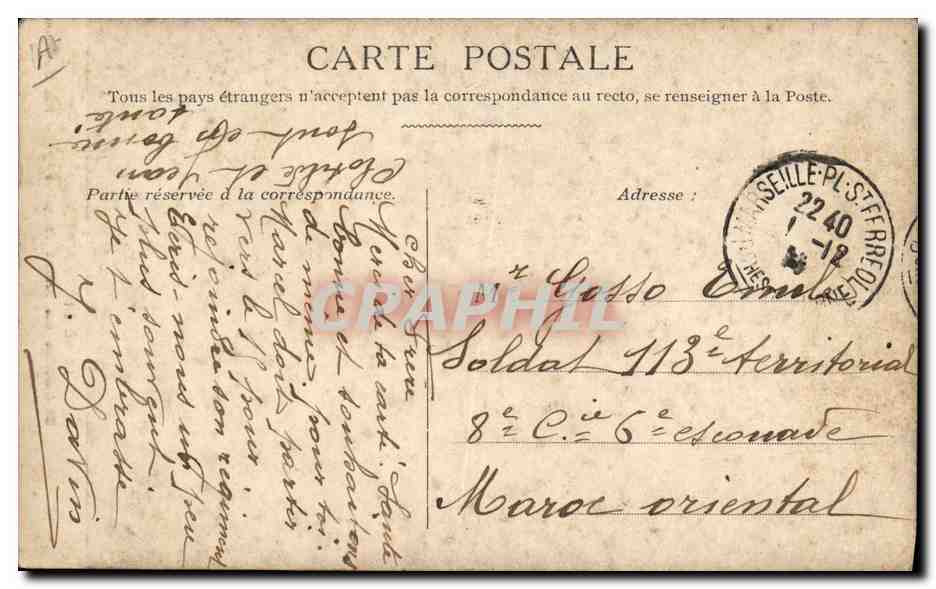 CARTE POSTALE
Tous les pays étrangers n'acceptent pas la correspondance au recto, se renseigner à la Poste.
Partie réservée à la correspondance.
Adresse :
MARSEILLE-PL. ST FERREOL
22 40
1-12
Mr Gosso Emile
Soldat 113e territorial
8e Cie 6e escouade
Maroc oriental
Cher frère
Reçu ta carte. Santé
bonne et souhaitons
de même pour toi.
Marcel doit partir
vers le 9 pour
rejoindre son régiment
Ecris-nous un peu
plus souvent
Je t'embrasse
J. Davin
Clotilde et Jean
sont en bonne
santé
CPARAMA